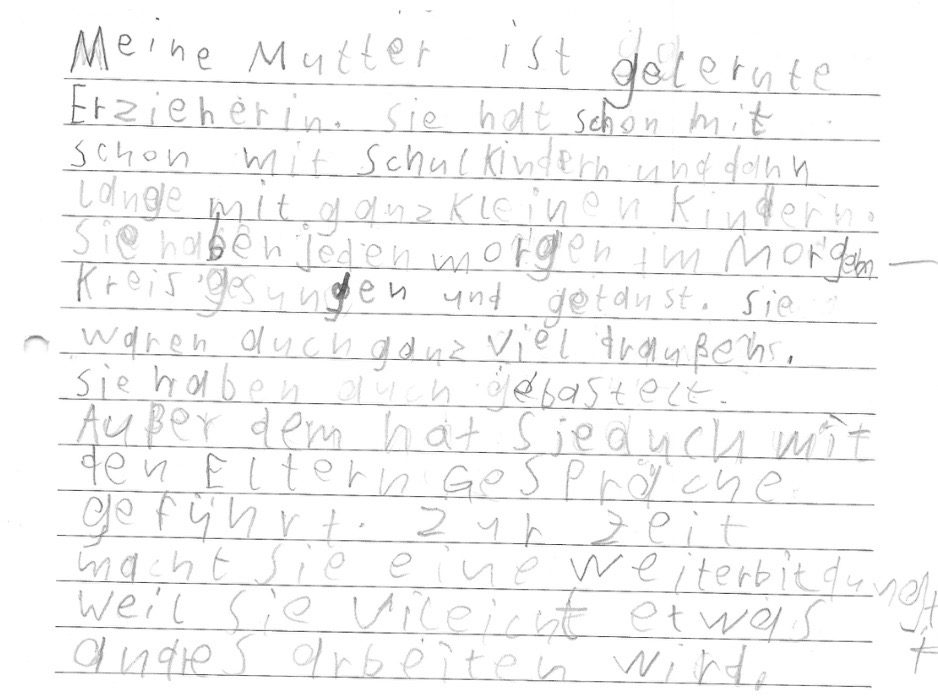 Meine Mutter ist gelernte
Erzieherin. Sie hat schon mit
schon mit Schulkindern und dann
Lange mit ganz kleinen Kindern.
Sie haben jeden morgen im Morgen
Kreis gesungen und getanst. Sie
waren auch ganz viel draußens.
Sie haben auch gebastelt.
Außer dem hat Sie auch mit
den Eltern Gespräche
geführt. Zur zeit
macht Sie eine Weiterbildung,
weil Sie vileicht etwas
andres arbeiten wird.